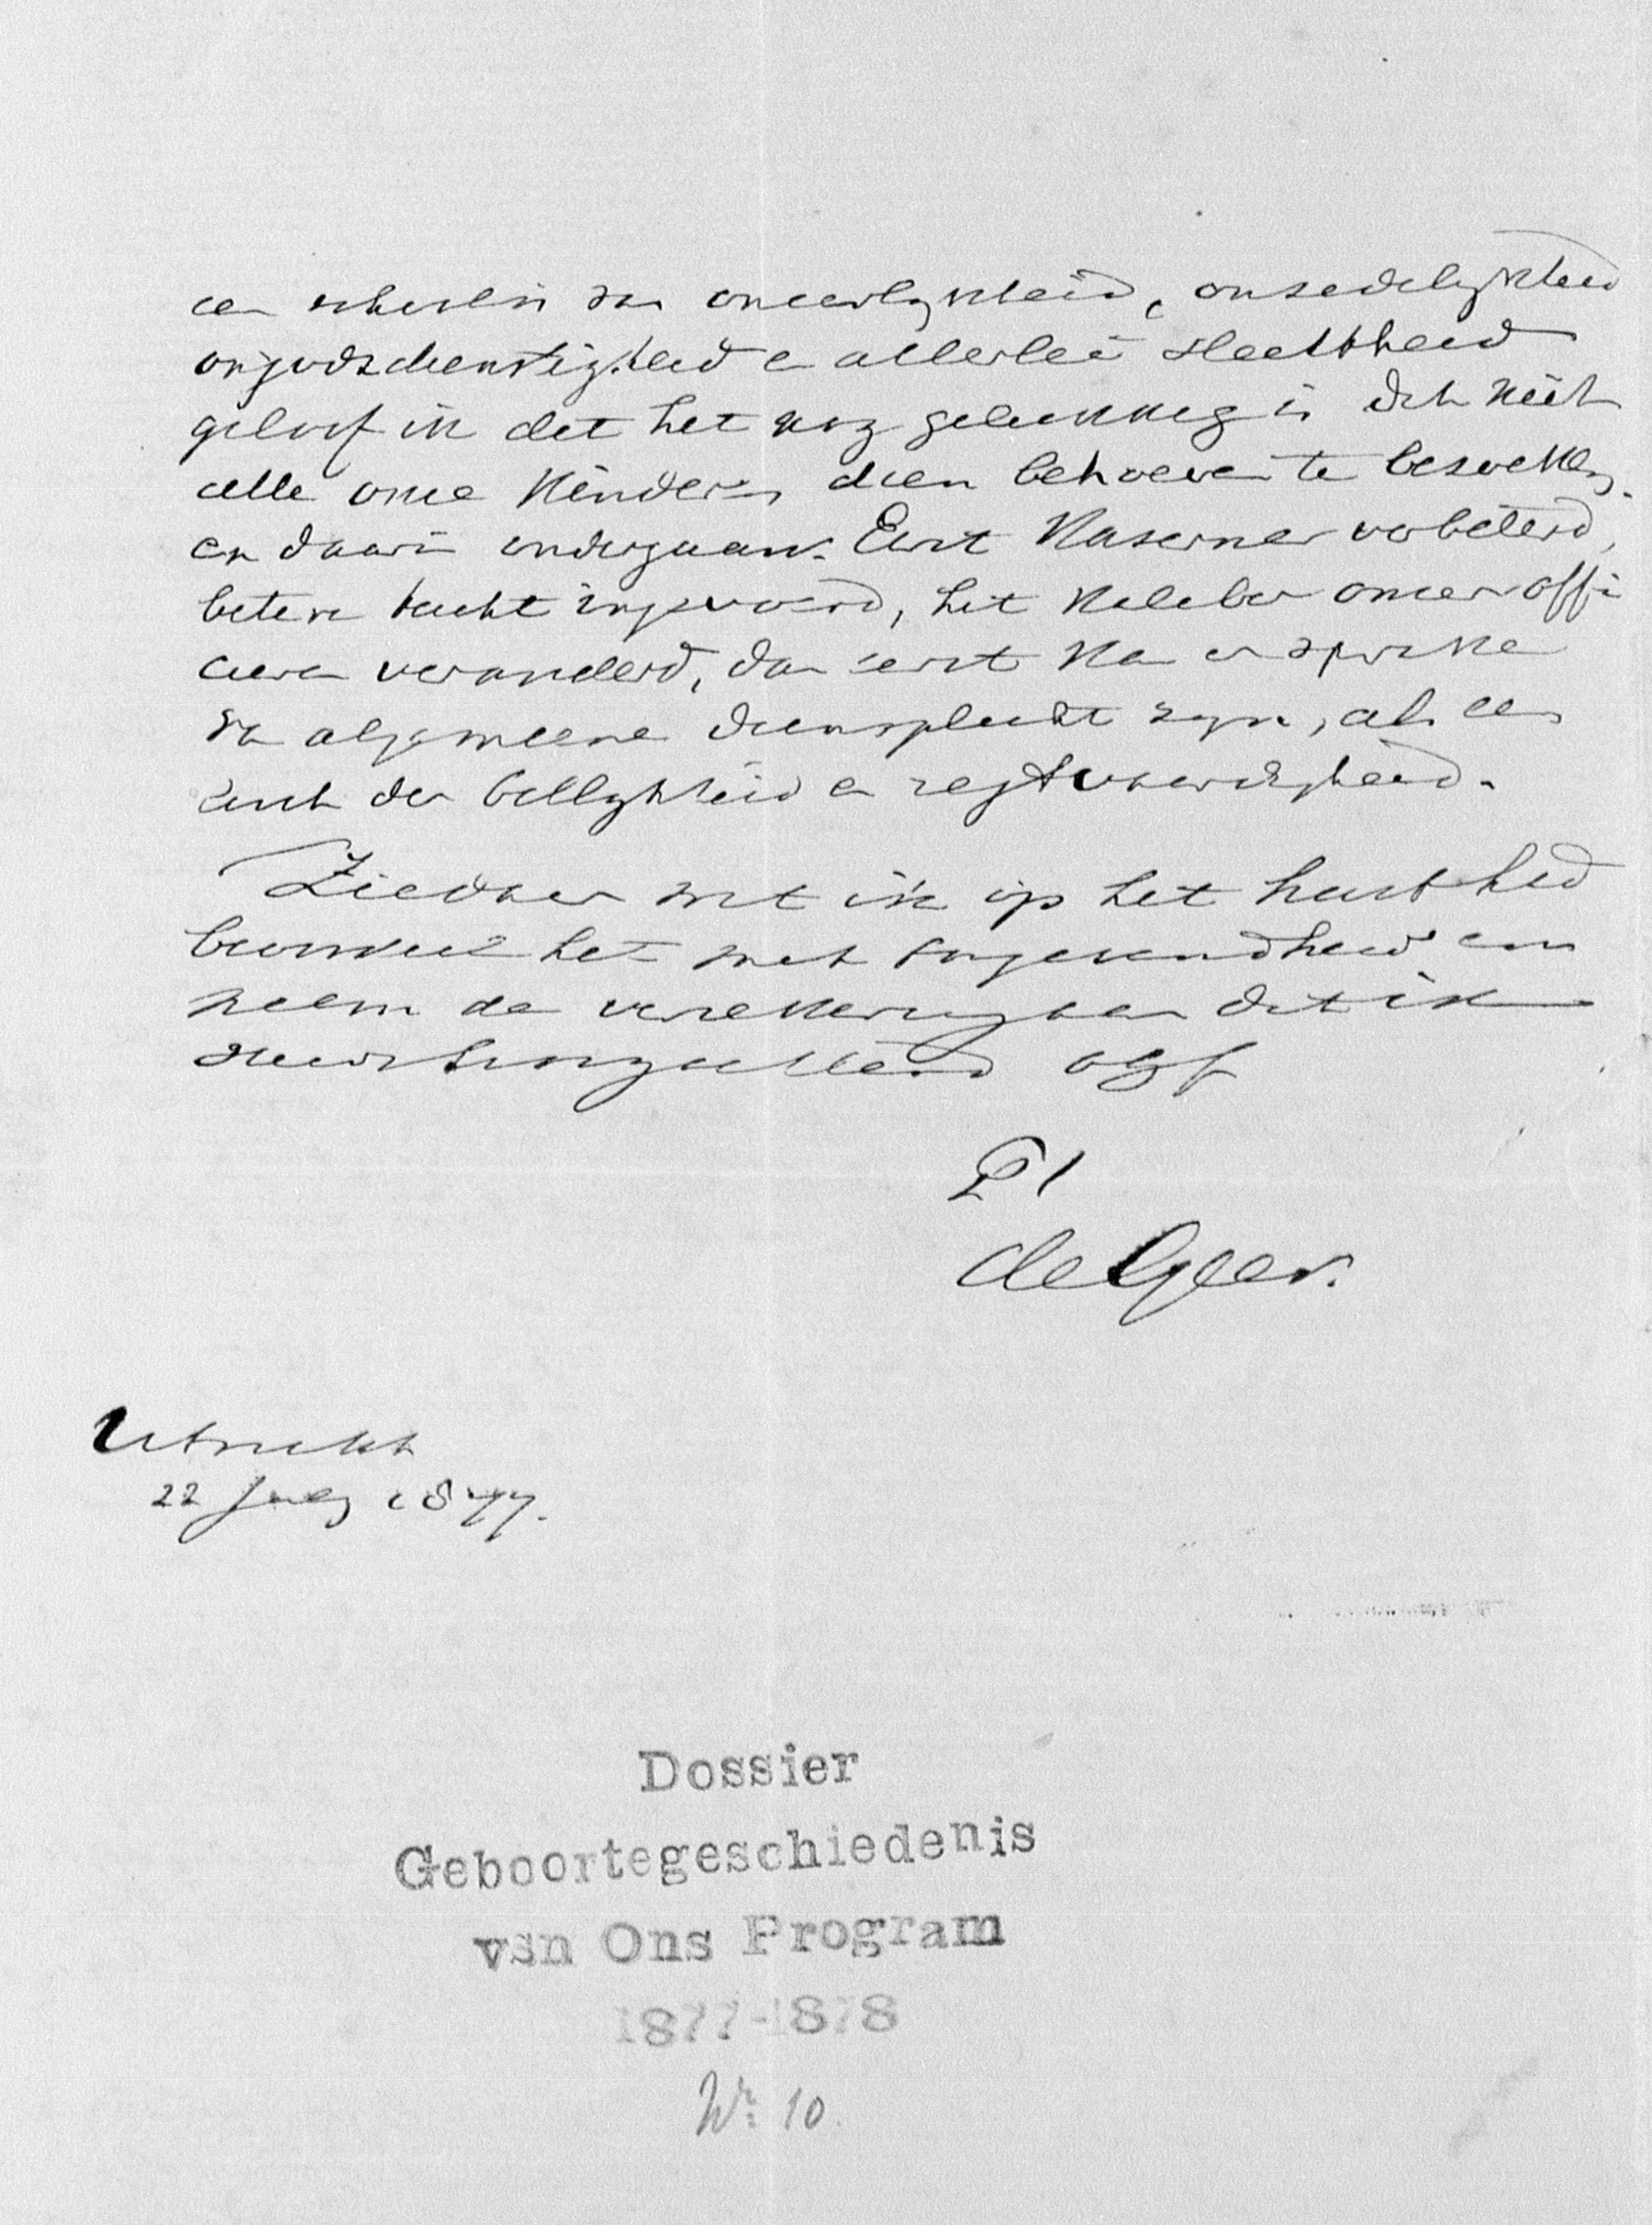 een school is van oneerlykheid, onzedelykheid
ongodsdienstigheid en allerlei slechtheid
geloof ik dat het nog gelukkig is dat niet
alle onze kinderen dien behoeven te bezoeken
en daarin ondergaan. Eerst kazernes verbeterd,
beter tucht ingevoerd, het onzer offi
cieren veranderd, dan eerst kan er sprake
van algemeene dienspleicht zyn, als een
eisch der billykheid en regtvaardigheid.
Ziedaar wat ik op het hart had
beoordeel het met toegevendheid en
neem de verzekering aan dat ik
steeds hoogachtend
de Geer.
Utrecht
22 July 1877.
Dossier
Geboortegeschiedenis
van Ons Program
1877-1878
No: 10.